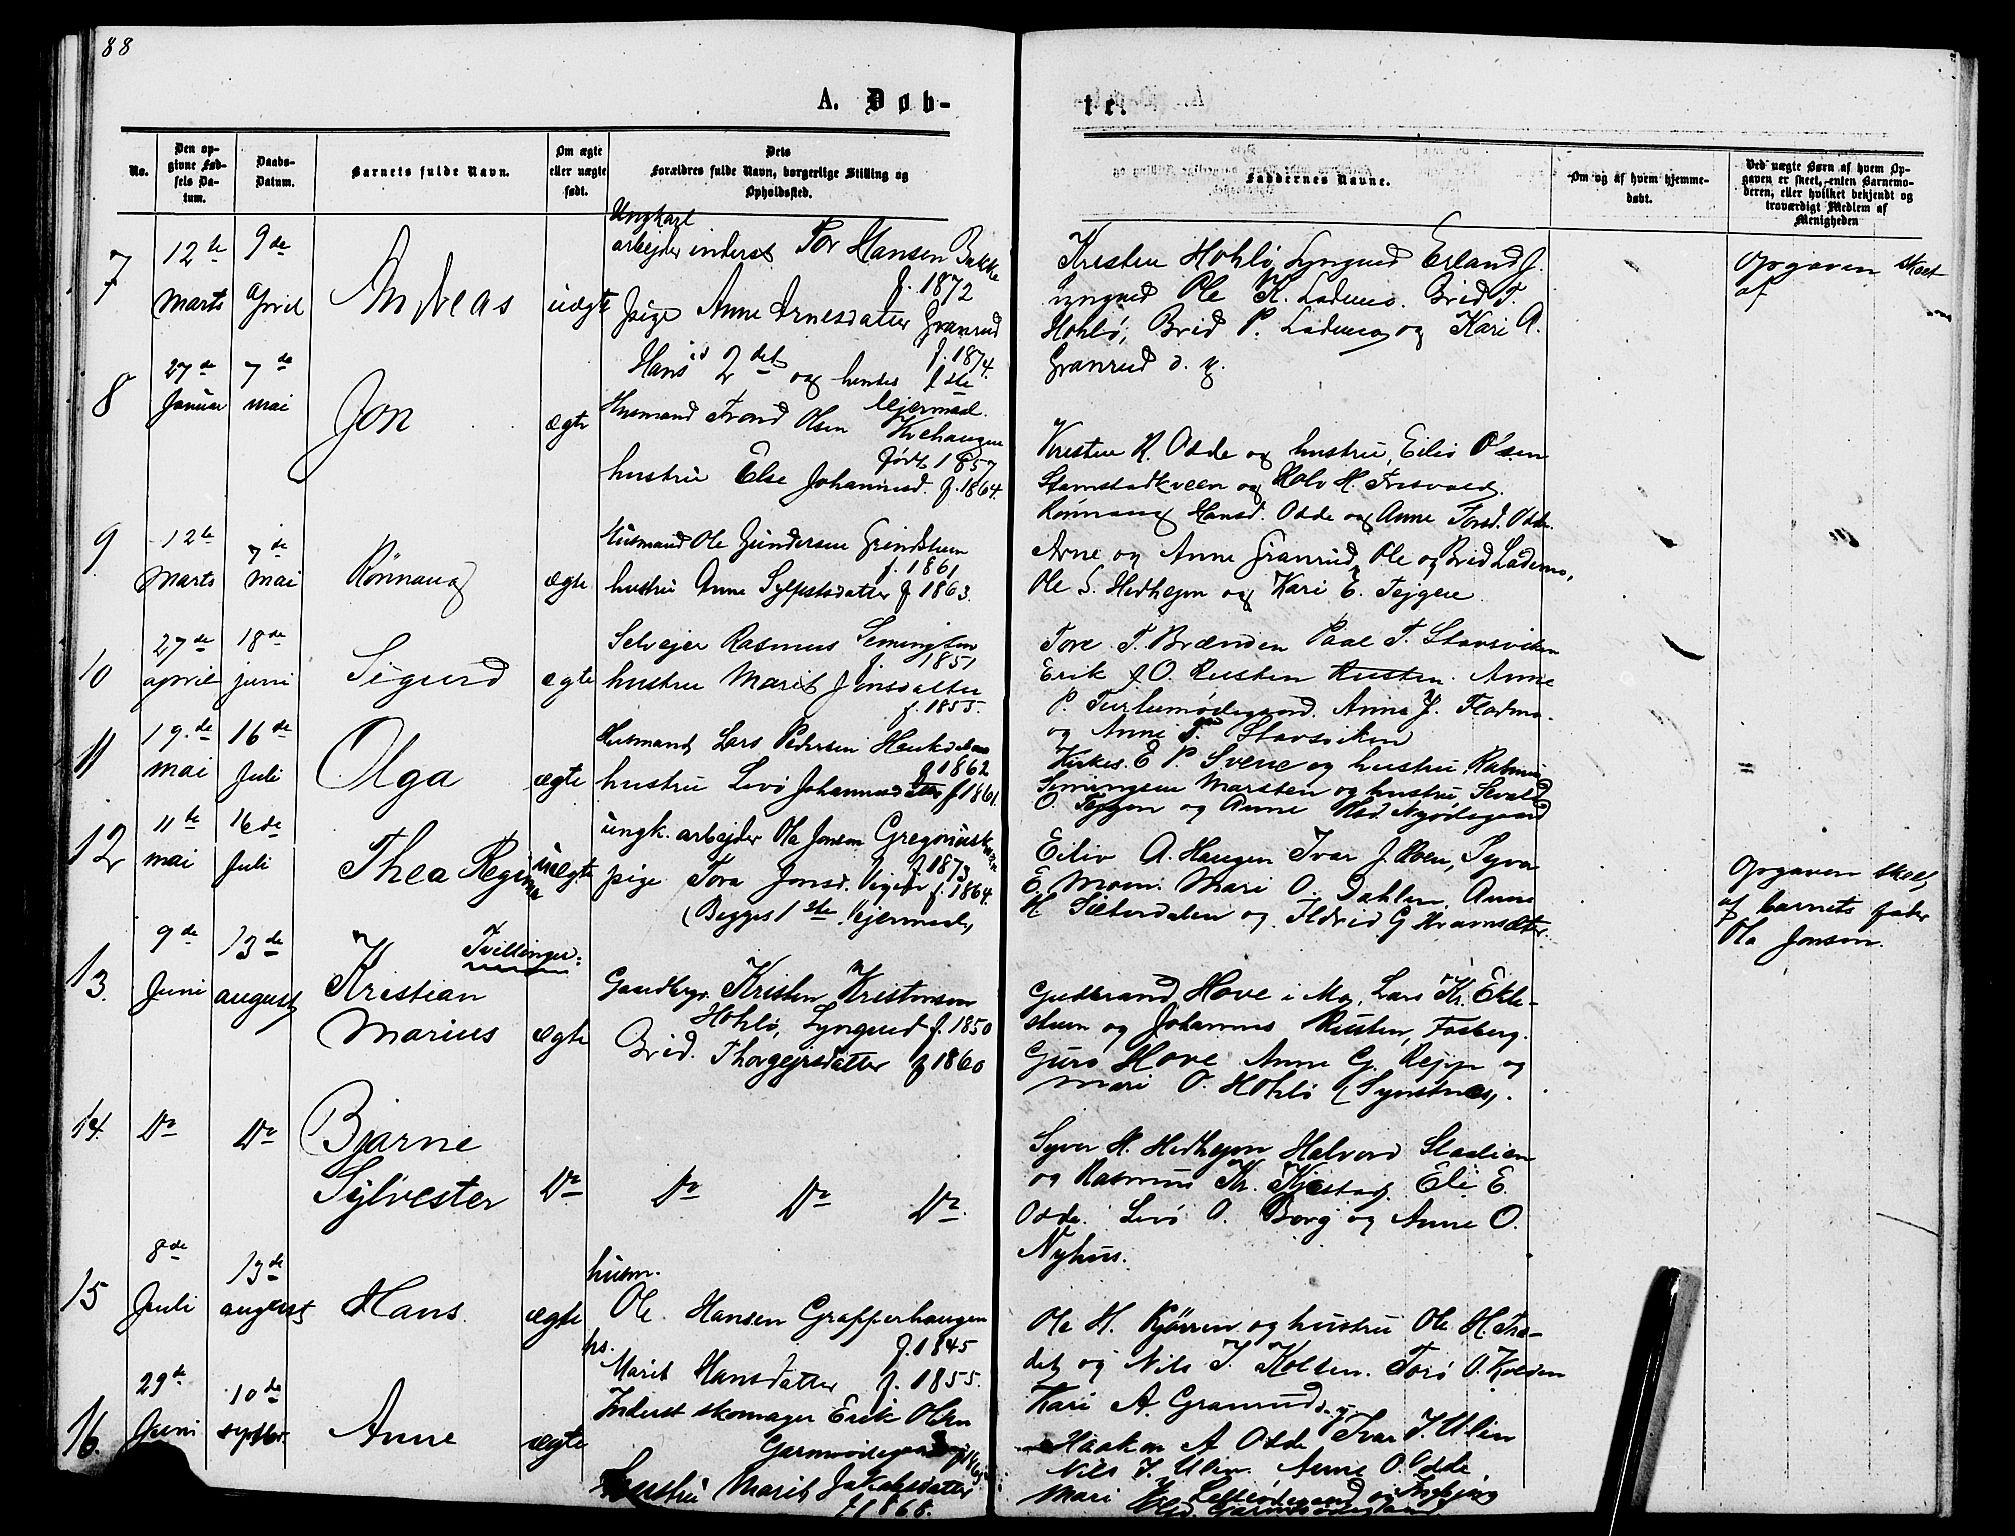 88
A. Døb-
te.
No.
Den op-
givne Fød-
sels Da-
tum.
Daabs-
Datum.
Barnets fulde Navn.
Om ægte
eller uægte
født.
Dets
Forældres fulde Navn, borgerlige Stilling og
Opholdssted.
Faddernes Navne.
Om og af hvem hjemme-
døbt.
Ved uægte Børn af hvem Op-
gaven er skeet, enten Barnemo-
deren, eller hvilket bekjendt og
troværdigt Medlem af
Menigheden
7
12te
Marts
9de
April
Andreas
uægte
Ungkarl
arbejder inderst Tor Hansen Bakke
f. 1872
pige Anne Arnesdatter Granrud
f. 1874.
Hans 2det og hendes 1ste
lejermaal.
Kristen Hohlø, Lyngved Erland J.
Lyngved Ole K. Lademo. Brid T.
Hohlø, Brid P. Lademo og Kari A.
Granrud d. y.
Opgaven skeet
af
8
27de
Januar
7de
mai
Jon
ægte
Husmand Trond Olsen
født 1857
hustru Else Johannesd. f. 1864.
Kristen R. Odde og hustru, Eiliv Olsen
og Halv H. Tresvold.
Rønnaug Hansd. Odde og Anne Torsd. Odde.
9
12te
Marts
7de
mai
Rønnaug
ægte
Husmand Ole Gundersen Grindstuen
f. 1861
hustru Anne Sylfestsdatter f. 1863.
Arne og Anne Granrud, Ole og Brid Lademo,
Ole S. Hedhejm og Kari E. Tejgen
10
27de
april
18de
juni
Sigurd
ægte
Selvejer Rasmus Semingsen
f. 1851
hustru Marit Jonsdatter
f. 1855.
Tore T. Brænden Paal T. Stavsviken
Erik O. Rusten Rusten. Anne
P. Anne J. Flatmo.
og Anne P. Stavsviken
11
19.de
mai
16de
Juli
Olga
ægte
Husmand Lars Pedersen
f. 1862
hustru Livø Johannesdatter f. 1861.
Kirkes. E. P. Svene og hustru, Rasmus
Semingsen Marsten og hustru, Sevald
O. Tejgen og Anne Olsd. Nyødegaard
12
11te
mai
16de
Juli
Thea Regine
uægte
ungk. arbejder Ola Jonsen
f. 1873
pige Tora Jonsd. f. 1864.
(Begges 1ste lejermaal)
Eiliv A. Haugen Ivar J. Moen, Syver
E. Moen. Mari O. Dahlen, Anne
H. Sæterdalen og Ildrid G. Kramsæter.
Opgaven skeet
af barnets fader
Ola Jonsen.
Tvillinger:
13.
9de
Juni
13de
august
Kristian
Marius
ægte
Gaardbgr. Kristen Kristensen
Hohlø, Lyngved f. 1850
Brid Thorgejrsdatter f. 1860
Gudbrand Hove i Mo, Lars Kr. Ekle-
stuen og Johannes Rusten, Fosberg.
Guro Hove Anne G. Rejp og
Mari O. Hohlø (Synstnes).
14.
Do
Do
Bjarne
Sylvester
Do
Do Do Do
Syver H. Hedhejm Halvord
og Rasmus Kr. Kjestad. Eli E.
Odde. Livø O. Borg og Anne O.
Nyhus.
15
8de
Juli
13de
august
Hans.
ægte
husm.
Ole Hansen Grapperhaugen
f. 1845
hs.
Marit Hansdatter f. 1855.
Ola H. Kjørren og hustru Ole H. Træ-
det og Nils J. Kolden. Torø O. Kolden
Kari A. Granrud d. y.
16.
29de
Juni
10de
septbr.
Anne
ægte
Inderst skomager Erik Olsen
Garmoødegaard
hustru Marit Jakobsdatter
f. 1868.
Haakon A. Odde Ivar J. Ulin
Nils J. Ulin. Anne O. Odde,
Mari